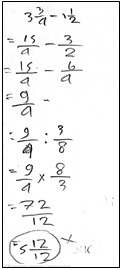 3 3/4 - 1 1/2
= 15/4 - 3/2
= 15/4 - 6/4
= 9/4 -
= 9/4 : 3/8
= 9/4 × 8/3
= 72/12
= 5 12/12 ×